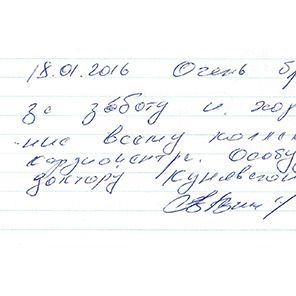 18.01.2016 Очень бл
за заботу и хор
ние всему колле
кардиоцентра. Особу
доктору Кунявской